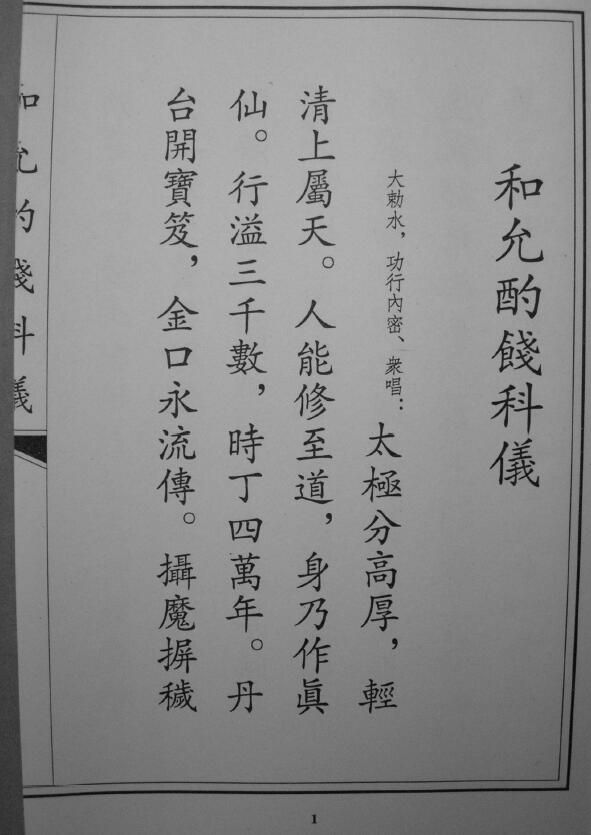 和允酌餞科儀
大勅水，功行內密、衆唱：太極分高厚，輕
清上屬天。人能修至道，身乃作眞
仙。行溢三千數，時丁四萬年。丹
台開寶笈，金口永流傳。攝魔摒穢
和允酌餞科儀
1